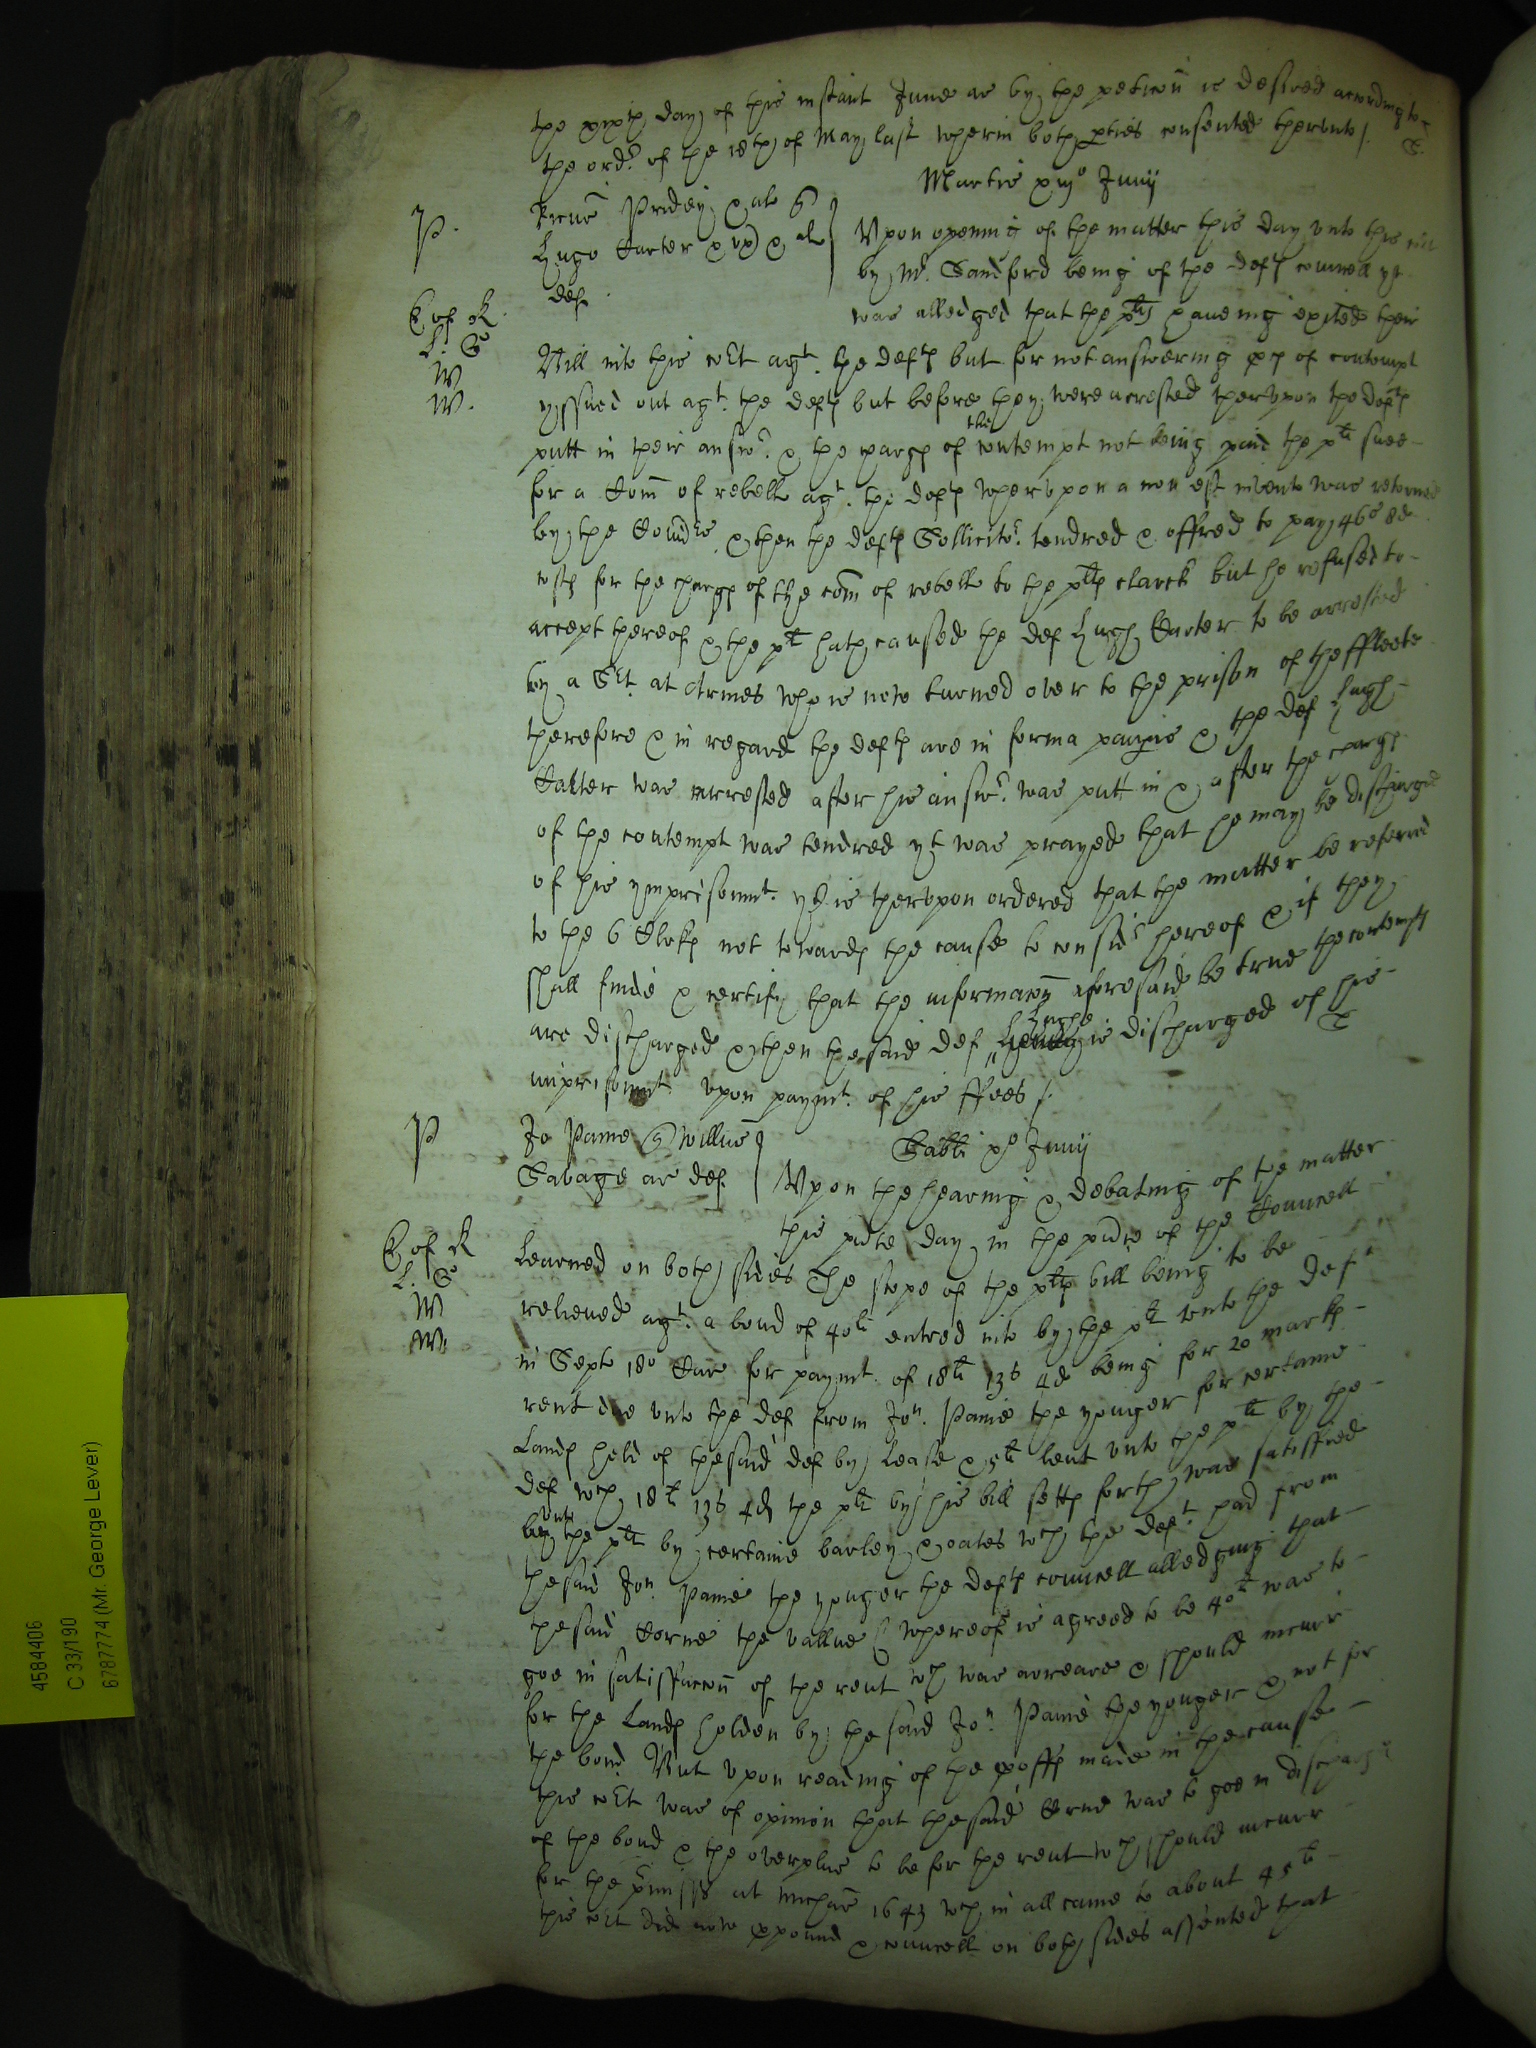 the xixth day of this instant June as by the peticon is desired according to
the ordr of the 18th of May last wherin both pties consented therunto /.
Martis xiijo Junij
P.
Pridey & al
Hugo Carter & ux & al
def
Vpon opening of the matter this day vnto this
by Mr Sandford being of the defts councell yt
was alledged that the plts haueing exited their
E of R.
L. S
W
W.
Bill into this cort agt. the defts but for not answering pcs of contempt
yssued out agt. the defts but before they were arrested thervpon the defts
putt in their answr. & the chargs of the contempt not being paid the plt sued
for a Com of rebell agt. the defts whervpon a non est invent was retorned
by the Comrs & then the defts Sollicitor. tendred & offred to pay 46s 8d
costs for the chargs of the com of rebell to the plts clarck but he refused to
accept thereof & the plt hath caused the def Hugh Carter to be arrested
by a Srt. at Armes who is now turned over to the prison of the ffleete
therefore & in regard the defts are in forma paupis & the def Hugh
Carter was arrested after his answr. was putt in & after the chargs
of the contempt was tendred yt was prayed that he may be discharged
of his ymprisonmt. yt is thervpon ordered that the matter be referred
to the 6 Clerks not towards the cause to considr hereof & if they
shall finde & certifie that the informacon aforesaid be true the contempts
are discharged & then the said def Hughe is discharged of his
imprisonmt. vpon paymt. of his ffees /.
P
Jo Paine Willus
Savage ar def
Sabti xo Junij
Vpon the hearing & debating of the matter
this pnte day in the pnce of the Councell
E of R
L. S
W
W.
Learned on both sides The scope of the plts bill being to be
relieued agt. a bond of 40li entred into by the plt vnto the deft
in Septr 18o Car for paymt. of 18li 13s 4d being for 20 marks
rent due vnto the def from Jon. Paine the younger for certaine
Lands held of the said def by Lease & 5li lent vnto the plt by the
def wch 18li 13s 4d the plt by his bill setts forth was satisffied
vnto the plt by certaine barley & oates wch the deft. had from
the said Jon. Paine the younger the defts councell alledging that
the said Corne the vallue whereof is agreed to be 40li was to
goe in satisfaccon of the rent wch was arreare & should incurr
for the Lands holden by the said Jon. Paine the younger & not for
the bond But vpon reading of the proffs made in the cause
this cort was of opinion that the said Corne was to goe in discharge
of the bond & the overplus to be for the rent wch should incurr
for the prmisss at Michas 1643 wch in all came to about 45li
this cort did now ppound & councell on both sides assented that
4584406
C 33/190
6787774 (Mr. George Lever)